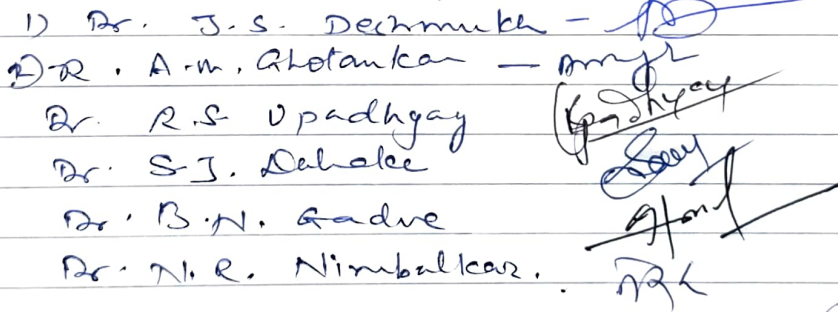 1) Dr. J.S. Deshmukh -
2) R. A.M. Ghotankar -
Dr. R.S Upadhyay
Dr. S.J. Dahake
Dr. B.N. Gadve
Dr. N.R. Nimbalkar.